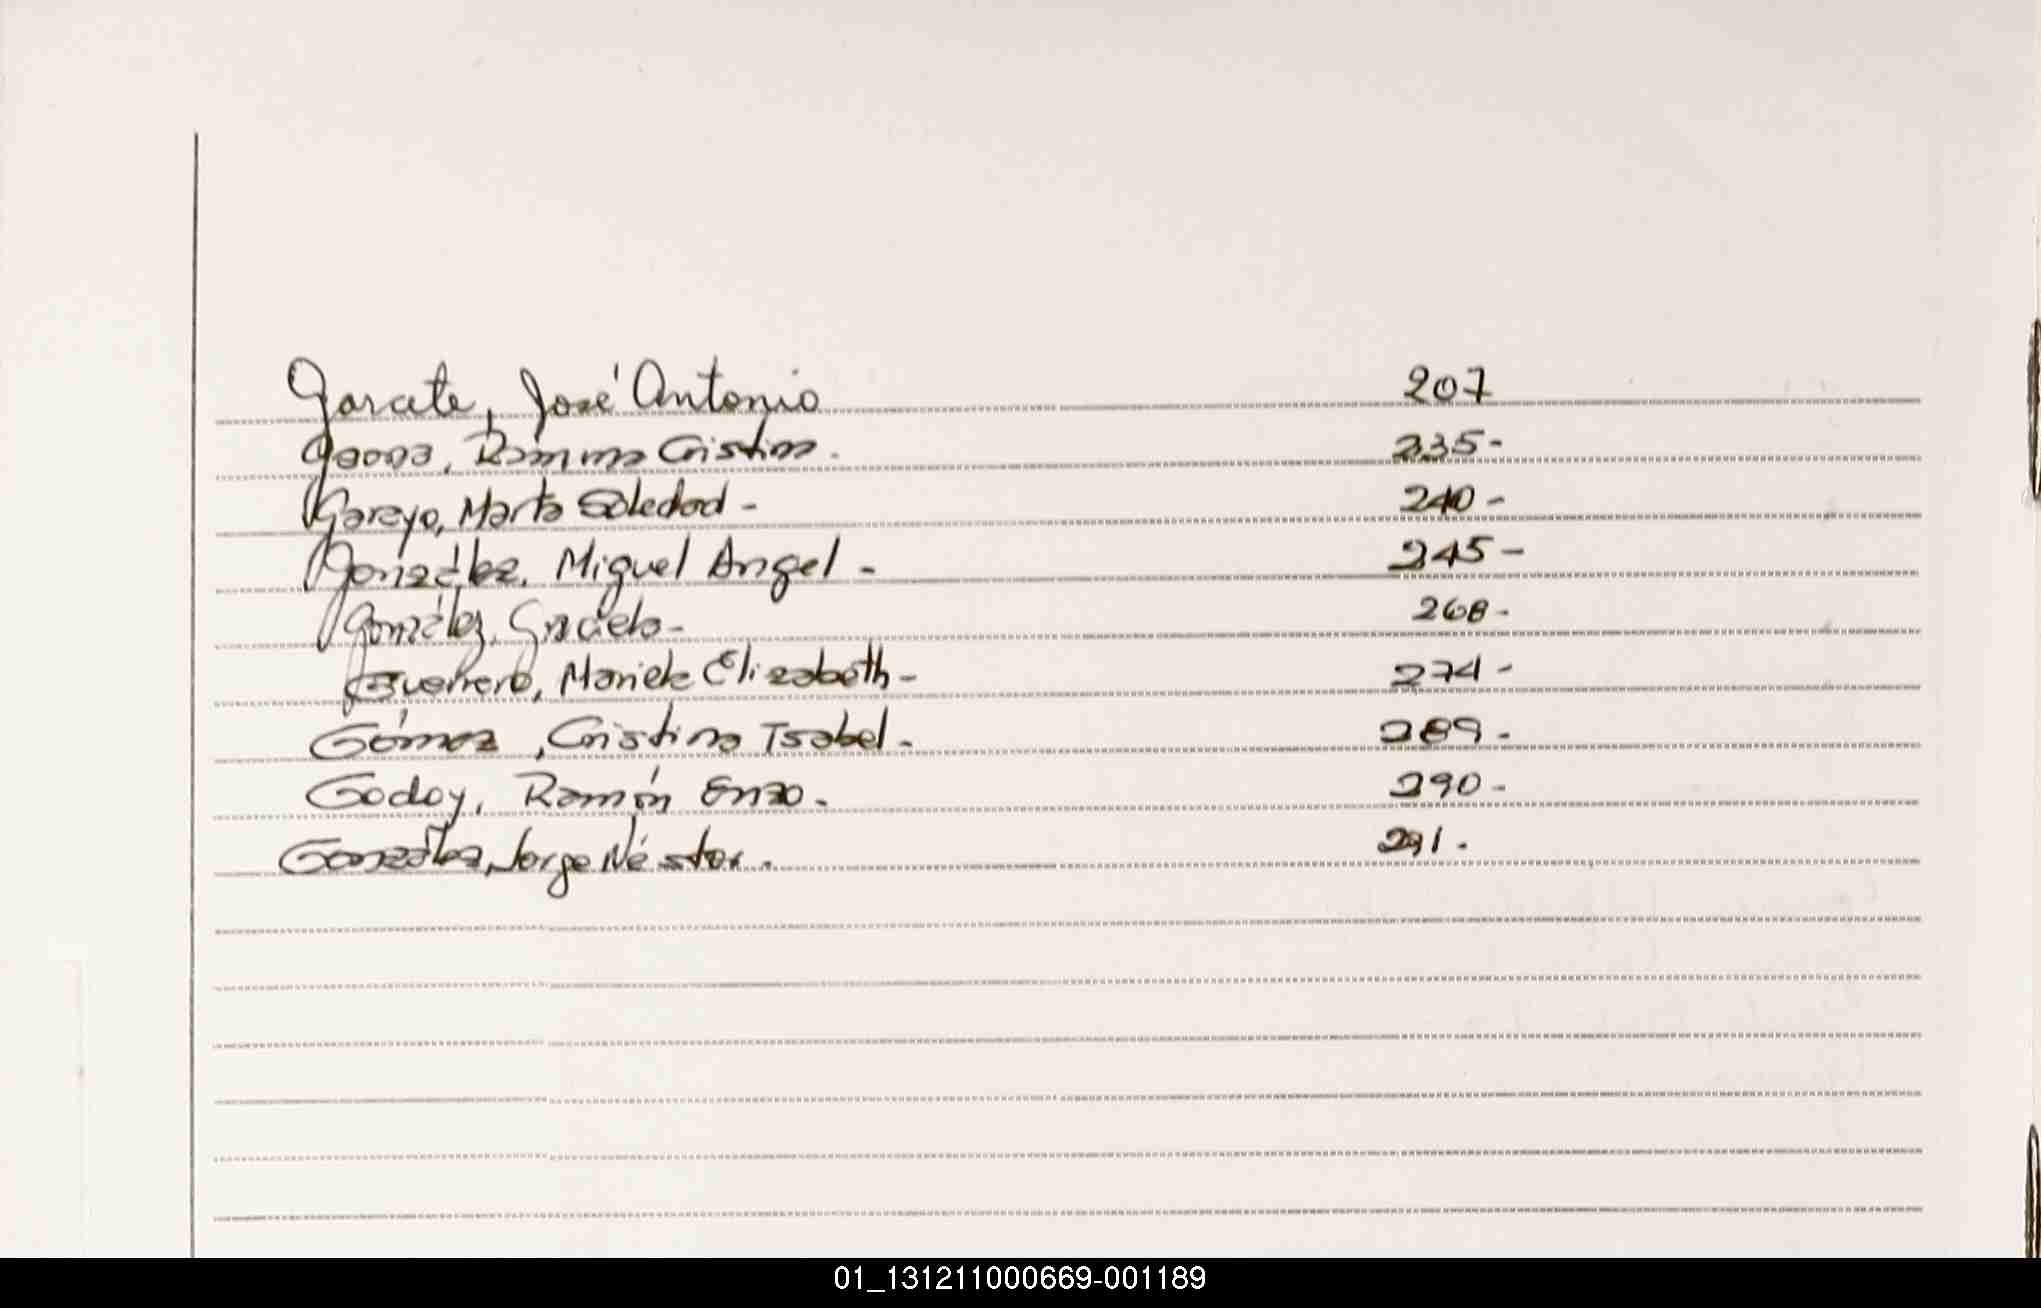 Garcete, José Antonio 207
Gaona, Ramona Cristina. 235-
Gareyo, Marta Soledad - 240-
González, Miguel Angel - 245-
González, Graciela- 268-
Guerrero, Mariela Elizabeth- 274-
Gómez, Cristina Isabel. 289.
Godoy, Ramón Enzo. 290-
González, Jorge Néstor. 291.
01_131211000669-001189